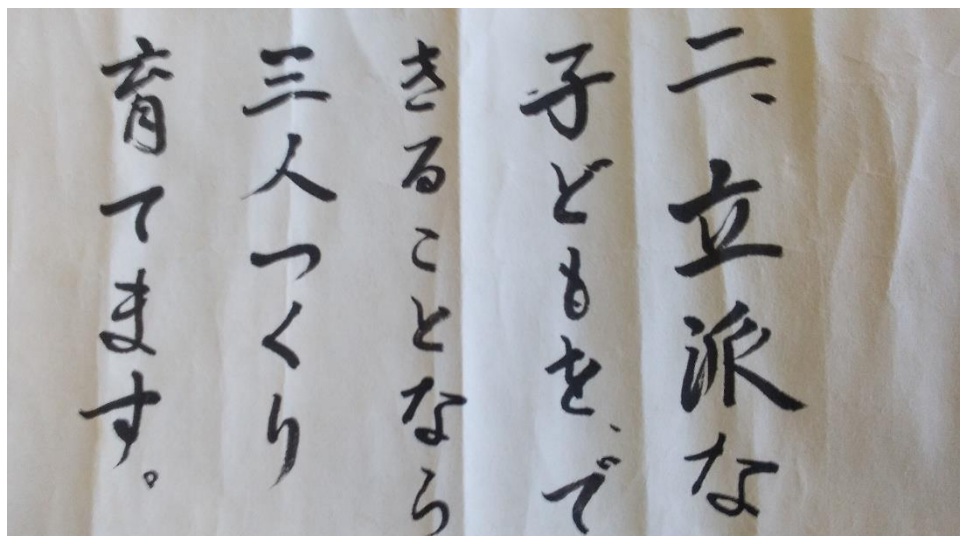 二、立派な
子どもを、で
きることなら
三人つくり
育てます。